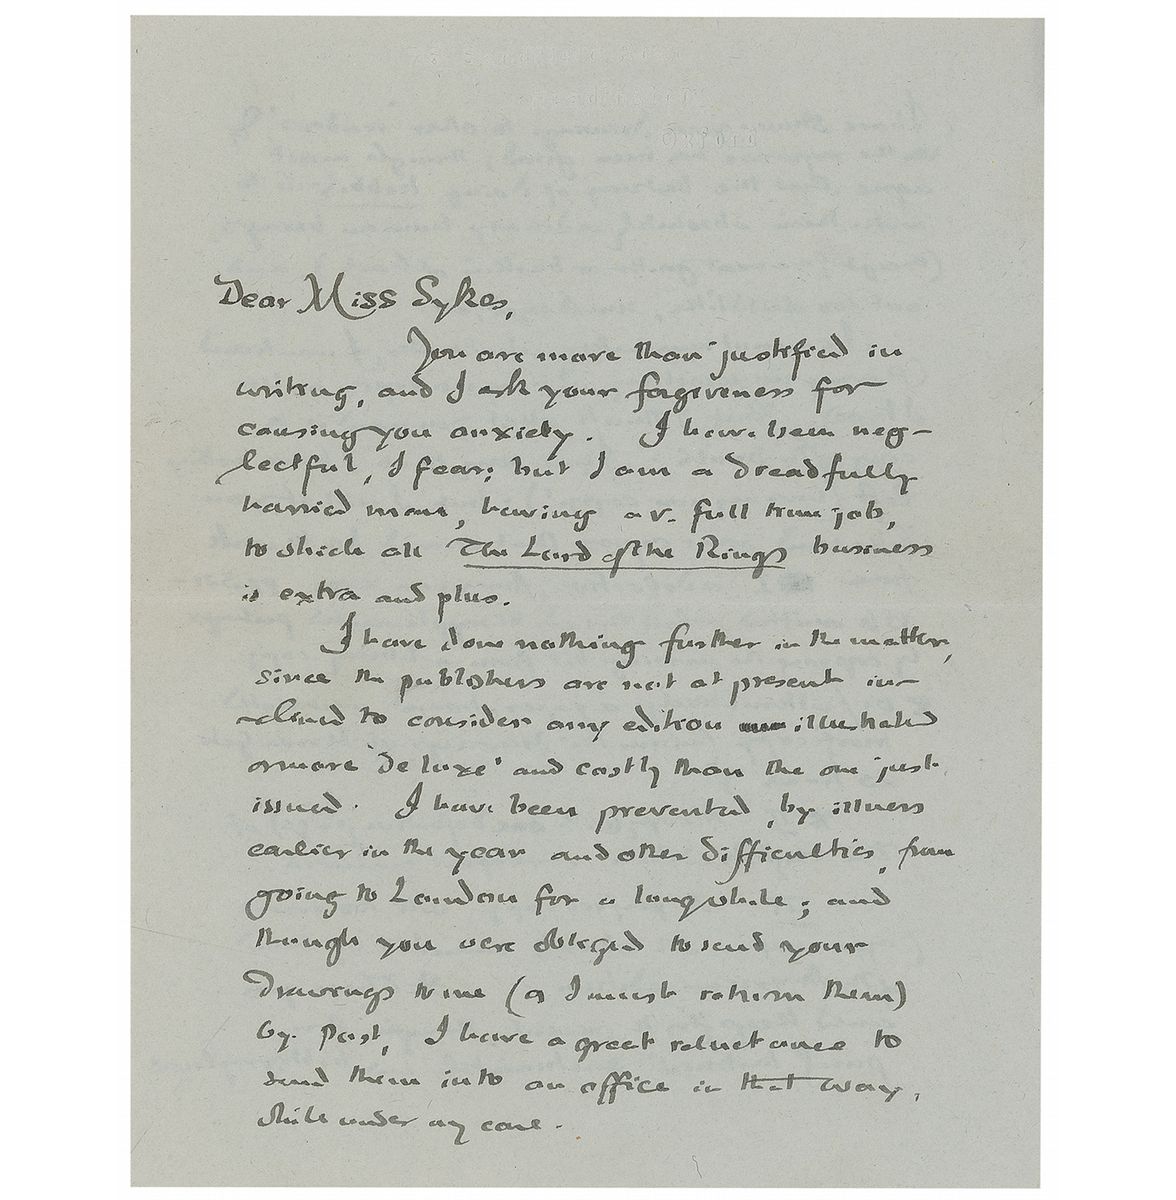 Dear Miss Sykes,
You are more than justified in
writing, and I ask your forgiveness for
causing you anxiety. I have been neg-
lectful, I fear; but I am a dreadfully
harried man, having a v. full time job,
to which all The Lord of the Rings business
is extra and plus.
I have done nothing further in the matter,
since the publishers are not at present in-
-clined to consider any edition illustrated
or more 'de luxe' and costly than the one just
issued. I have been prevented, by illness
earlier in the year and other difficulties, from
going to London for a long while; and
though you were obliged to send your
drawings to me (as I must return them)
by post, I have a great reluctance to
send them into an office in that way,
while under my care.